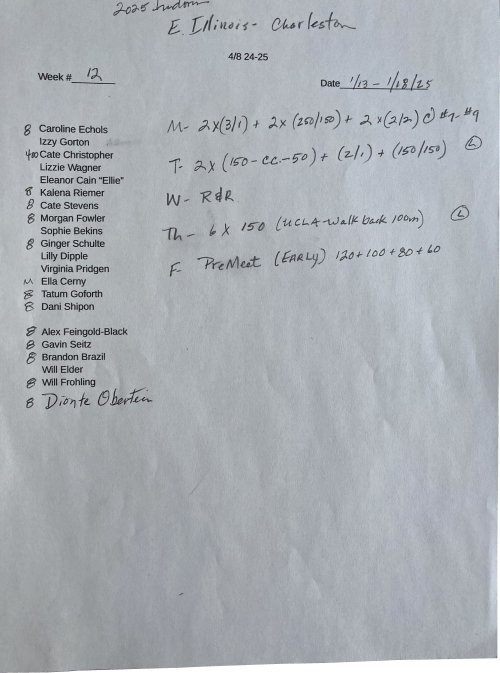 2025 Indoor
E. Illinois - Charleston
4/8 24-25
Week # 12
Date 1/13 - 1/18/25
8 Caroline Echols
Izzy Gorton
400 Cate Christopher
Lizzie Wagner
Eleanor Cain "Ellie"
8 Kalena Riemer
8 Cate Stevens
8 Morgan Fowler
Sophie Bekins
8 Ginger Schulte
Lilly Dipple
Virginia Pridgen
M Ella Cerny
8 Tatum Goforth
8 Dani Shipon
8 Alex Feingold-Black
8 Gavin Seitz
8 Brandon Brazil
Will Elder
8 Will Frohling
8 Dionte
M- 2x(3/1) + 2x(250/150) + 2x(2/2) #9
T- 2x(150-CC-50) + (2/1) + (150/150) L
W- R&R
Th- 6 x 150 (UCLA-Walk back 100m) L
F- PreMeet (EARLY) 120+100+80+60